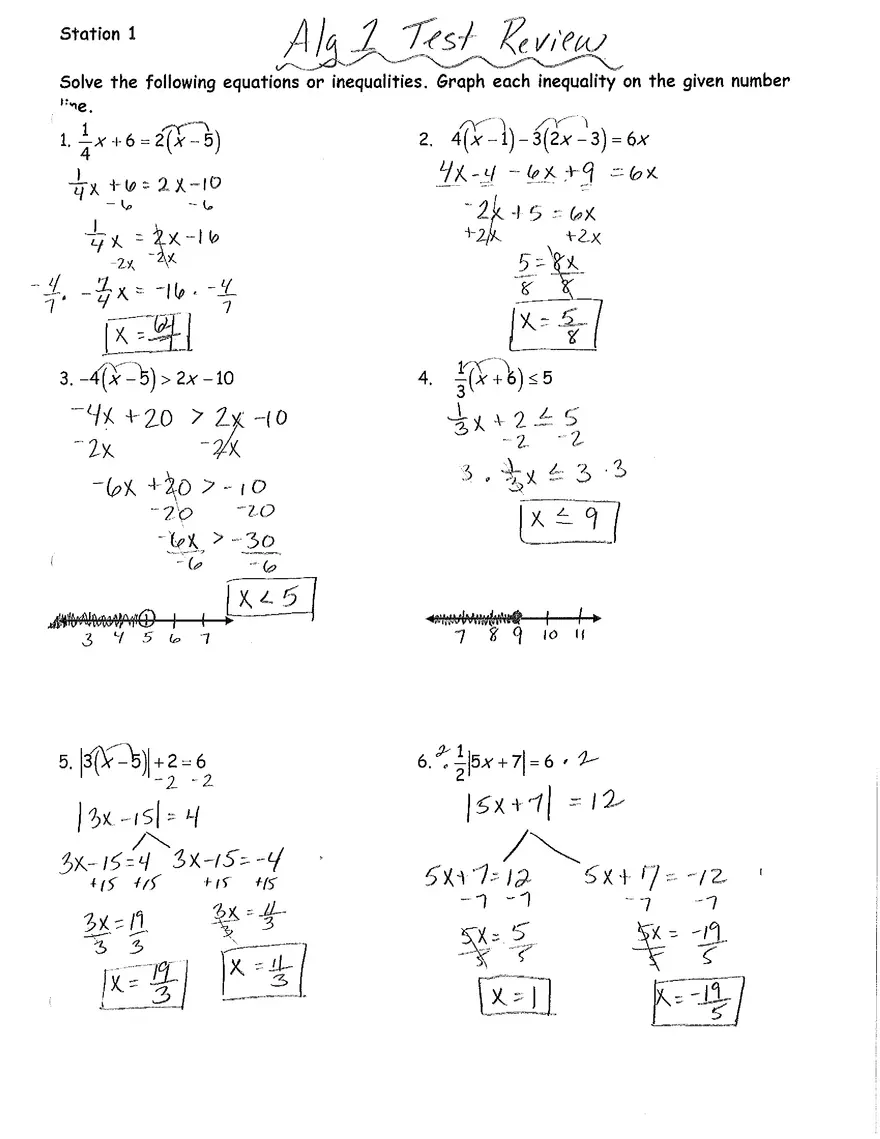 Station 1
Alg 1 Test Review
Solve the following equations or inequalities. Graph each inequality on the given number
line.
1. 1/4 x + 6 = 2(x – 5)
1/4 x + 6 = 2x – 10
– 6 – 6
1/4 x = 2x – 16
–2x –2x
–4/7 · –7/4 x = –16 · –4/7
x = 64/7
2. 4(x – 1) – 3(2x – 3) = 6x
4x – 4 – 6x + 9 = 6x
–2x + 5 = 6x
+2x +2x
5/8 = 8x/8
x = 5/8
3. –4(x – 5) > 2x – 10
–4x + 20 > 2x – 10
–2x –2x
–6x + 20 > –10
–20 –20
–6x/–6 > –30/–6
x < 5
3 4 5 6 7
4. 1/3 (x + 6) ≤ 5
1/3 x + 2 ≤ 5
–2 –2
3 · 1/3 x ≤ 3 · 3
x ≤ 9
7 8 9 10 11
5. |3(x – 5)| + 2 = 6
–2 –2
|3x – 15| = 4
3x – 15 = 4 3x – 15 = –4
+15 +15 +15 +15
3x/3 = 19/3 3x/3 = 11/3
x = 19/3 x = 11/3
6. 2 · 1/2 |5x + 7| = 6 · 2
|5x + 7| = 12
5x + 7 = 12 5x + 7 = –12
–7 –7 –7 –7
5x/5 = 5/5 5x/5 = –19/5
x = 1 x = –19/5